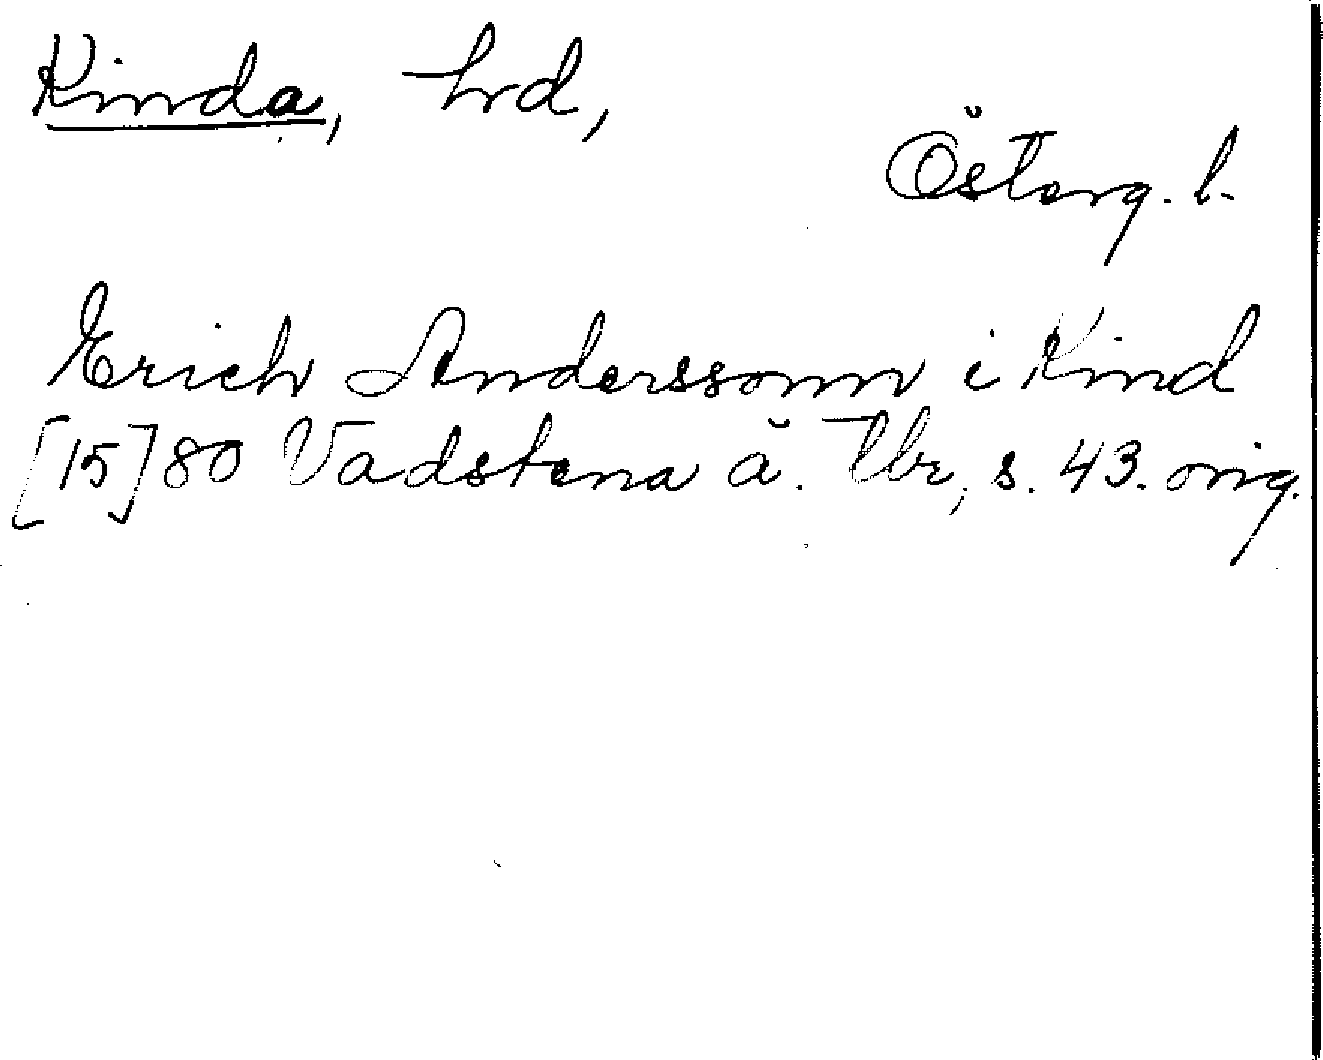 Kinda, hrd,
Österg. l.
Erich Anderssonn i Kind
[15]80 Vadstena ä. Tbr, s. 43. orig.